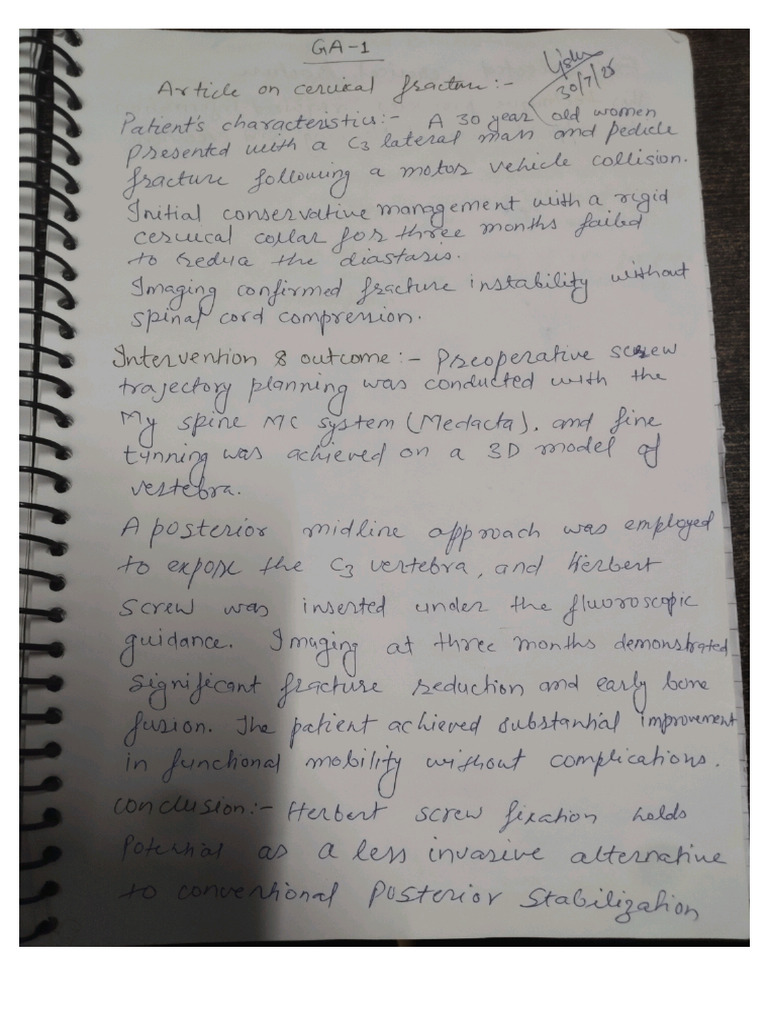 GA-1
30/7/25
Article on cervical fracture :-
Patient's characteristics:- A 30 year old women
presented with a C3 lateral mass and pedicle
fracture following a motor vehicle collision.
Initial conservative management with a rigid
cervical collar for three months failed
to reduce the diastasis.
Imaging confirmed fracture instability without
spinal cord compression.
Intervention & outcome :- Preoperative screw
trajectory planning was conducted with the
My spine MC system (Medacta), and fine
tunning was achieved on a 3D model of
vertebra.
A posterior midline approach was employed
to expose the C3 vertebra, and Herbert
screw was inserted under the fluoroscopic
guidance. Imaging at three months demonstrated
significant fracture reduction and early bone
fusion. The patient achieved substantial improvement
in functional mobility without complications.
Conclusion:- Herbert screw fixation holds
Potential as a less invasive alternative
to conventional Posterior Stabilization